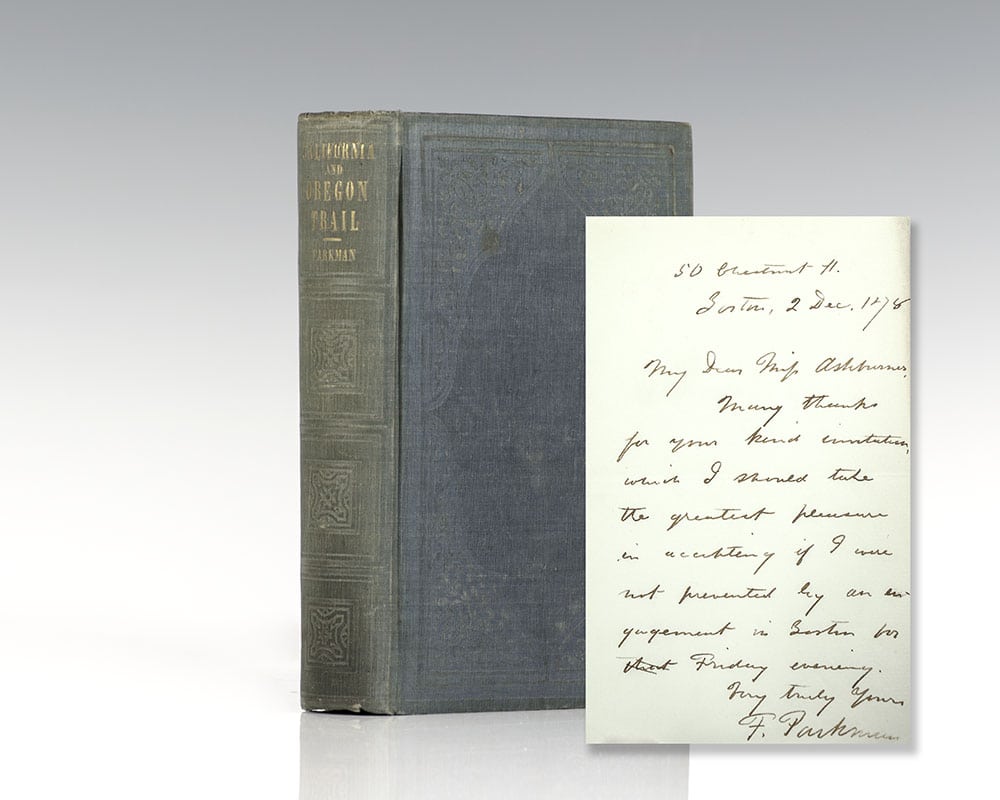 CALIFORNIA
AND
OREGON
TRAIL
PARKMAN
50 Chestnut St.
Boston, 2 Dec. 1878
My Dear Miss Ashburner,
Many thanks
for your kind invitation,
which I should take
the greatest pleasure
in accepting if I were
not prevented by an en-
gagement in Boston for
that Friday evening.
Very truly Yours
F. Parkman